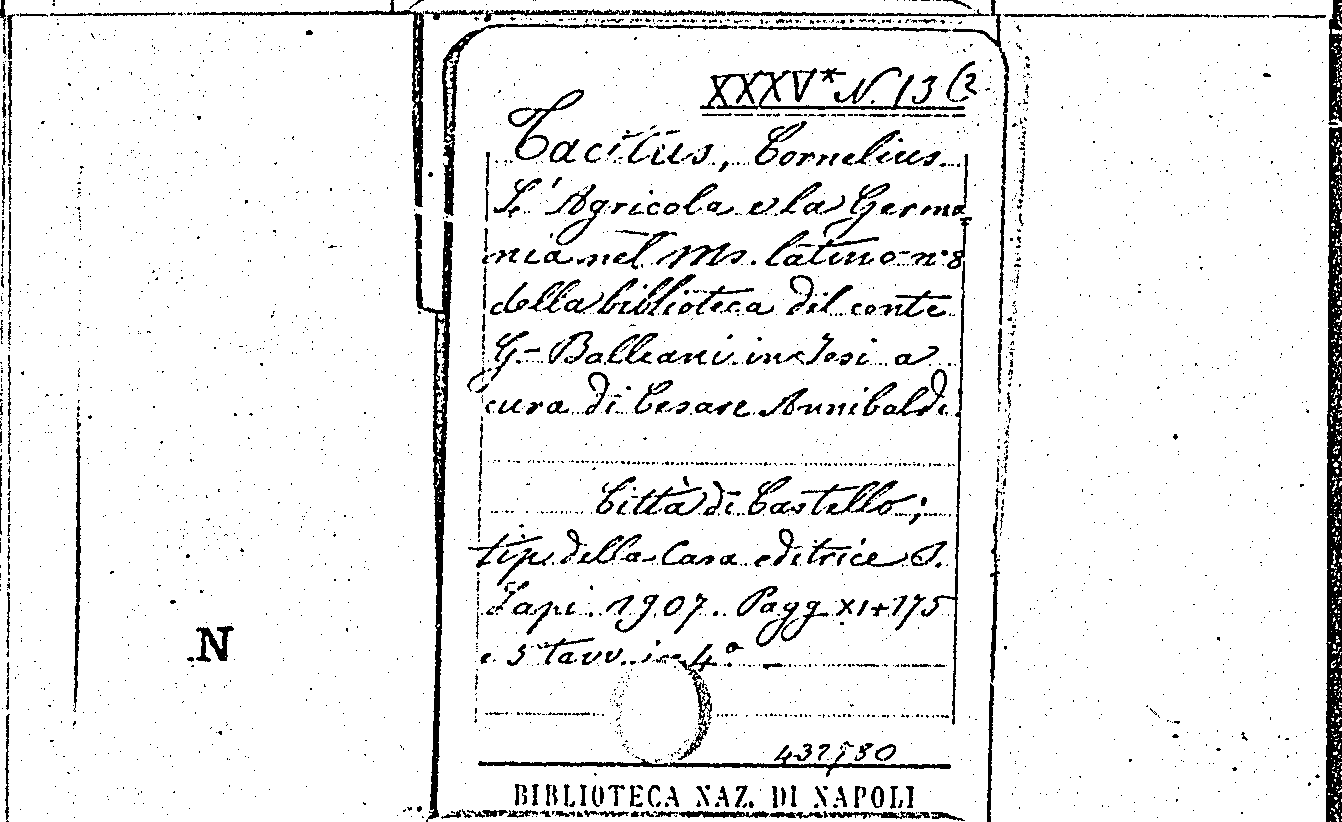 XXXV* N. 13 (2
Tacitus, Cornelius.
L'Agricola e la Germa=
nia nel Ms. latino n. 8
della biblioteca del conte
G- Balleani in Jesi a
cura di Cesare Annibaldi.
Città di Castello;
tip. della Casa editrice S.
Lapi. 1907. Pagg XI+175
e 5 tavv. in 4º -
N
BIBLIOTECA NAZ. DI NAPOLI